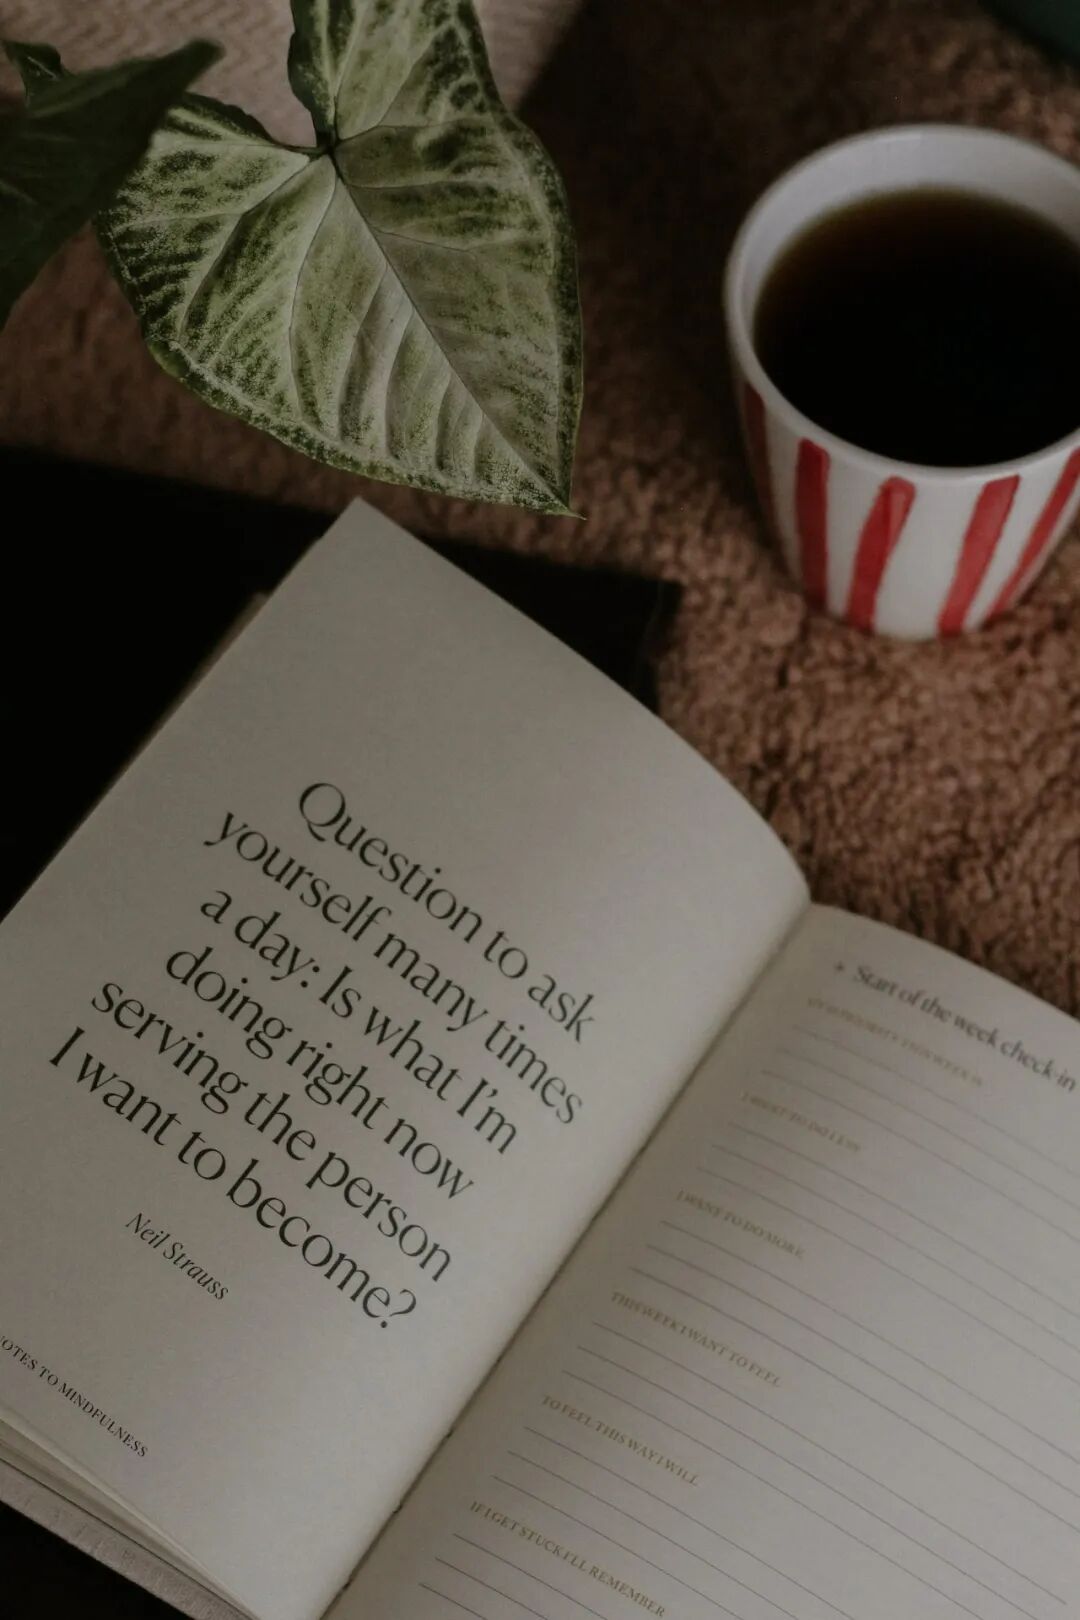 Question to ask
yourself many times
a day: Is what I'm
doing right now
serving the person
I want to become?
Neil Strauss
OTES TO MINDFULNESS
Start of the week check-in
I WANT TO DO LESS
I WANT TO DO MORE
THIS WEEK I WANT TO FEEL
TO FEEL THIS WAY I WILL
IF I GET STUCK I'LL REMEMBER